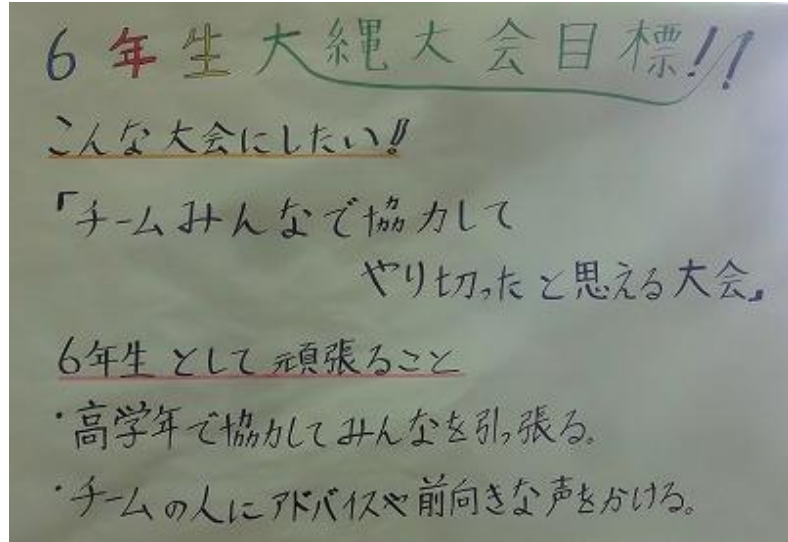 6年生大縄大会目標!!
こんな大会にしたい!!
「チームみんなで協力して
やり切ったと思える大会」
6年生として頑張ること
・高学年で協力してみんなを引っ張る。
・チームの人にアドバイスや前向きな声をかける。